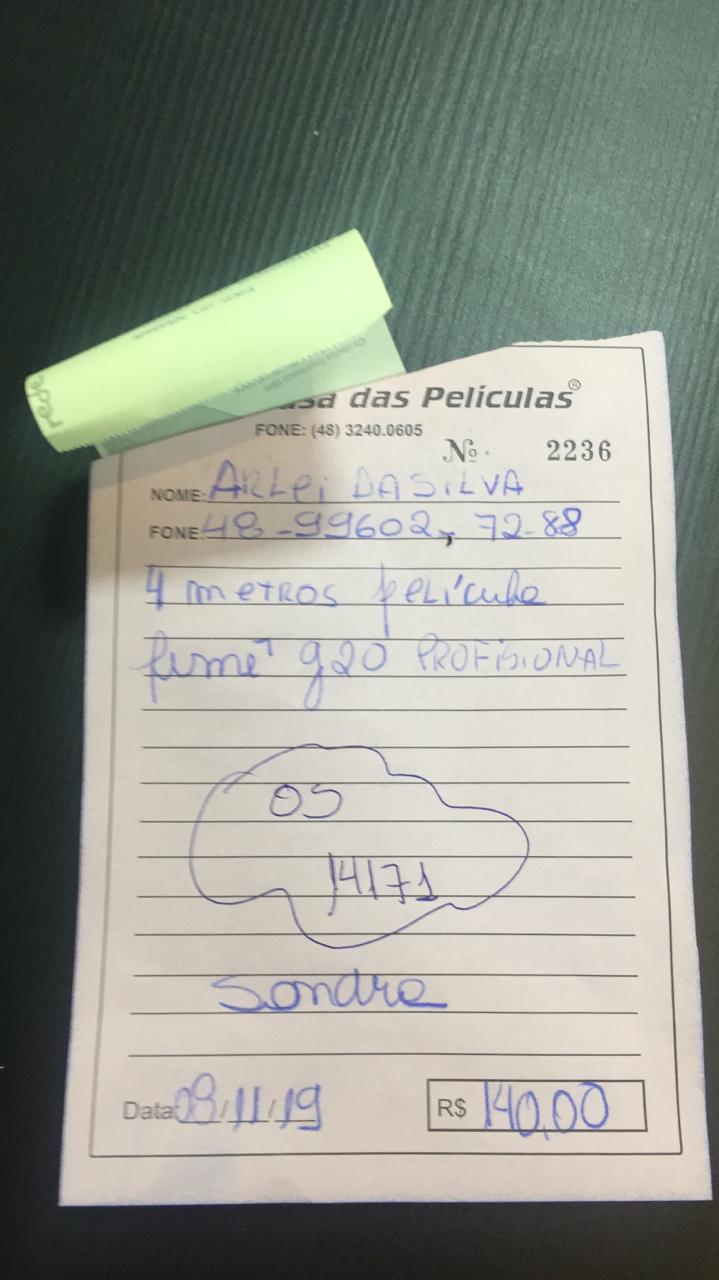 rede
asa das Películas®
FONE: (48) 3240.0605
Nº. 2236
NOME: ARLEI DA SILVA
FONE: 48-99602-72-88
4 metros película
fumê g20 PROFISIONAL
OS
14171
Sandra
Data: 09/11/19
R$ 140,00